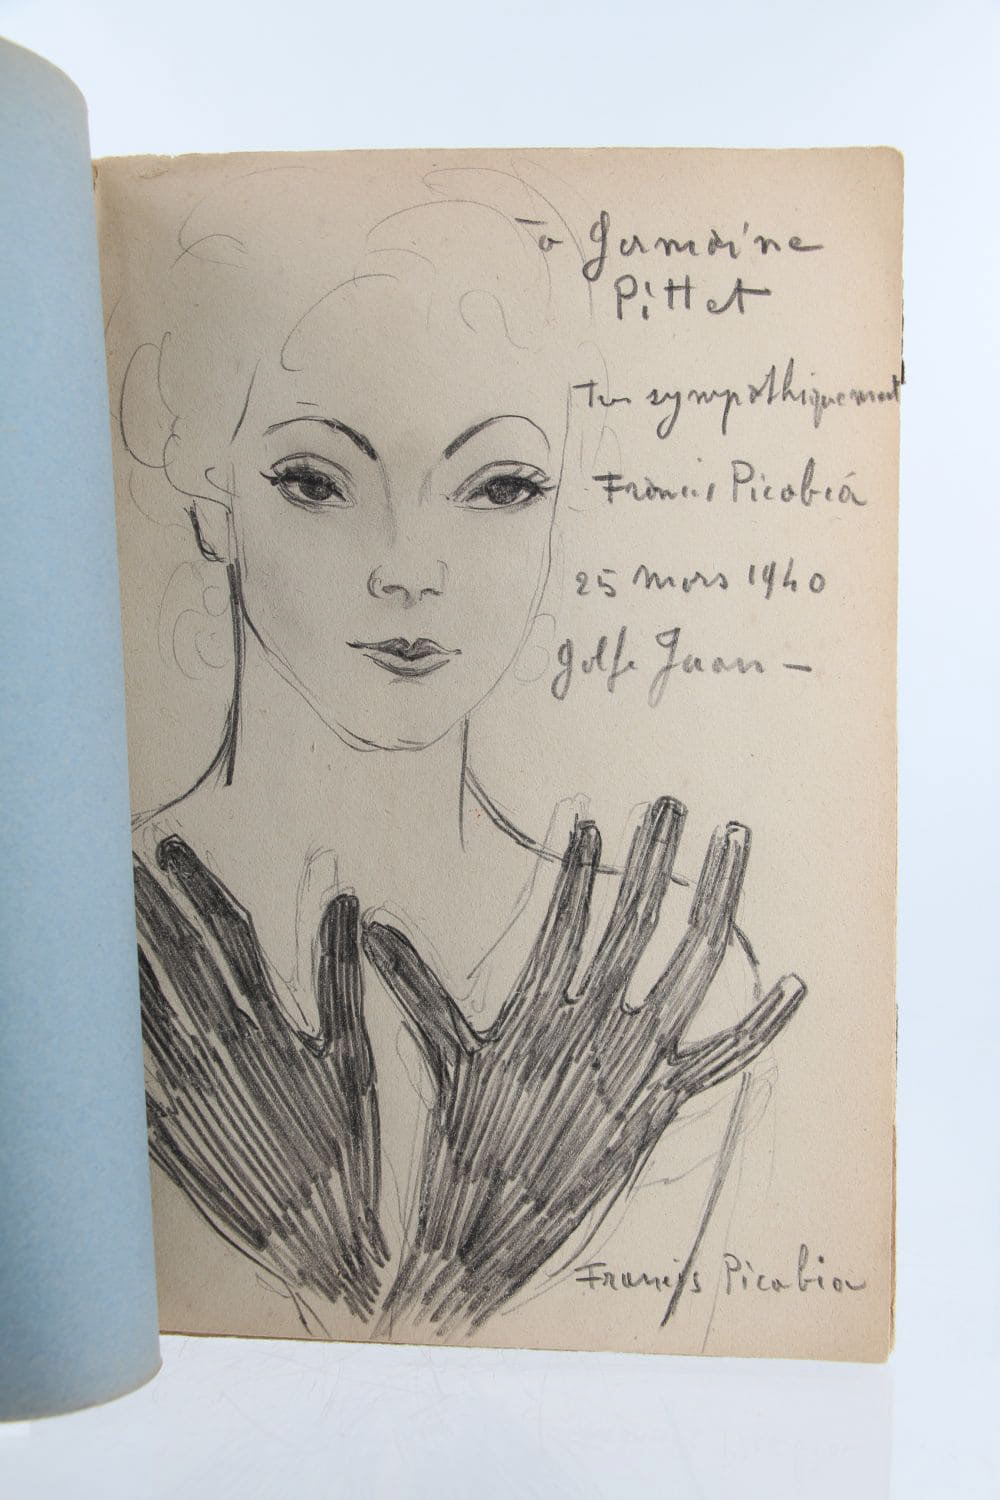 To Germaine
Pittet
sympathiquement
Francis Picabia
25 mars 1940
Golfe Juan —
Francis Picabia